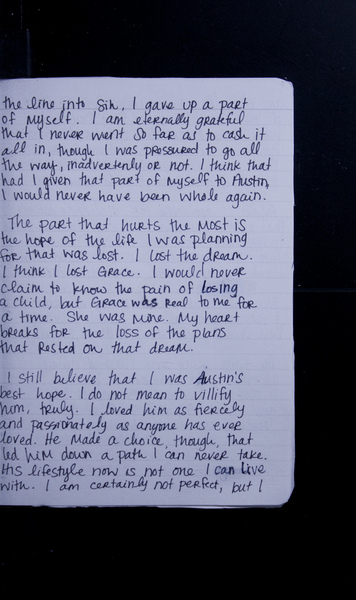 the line into sin, I gave up a part
of myself. I am eternally grateful
that I never went so far as to cash it
all in, though I was pressured to go all
the way, inadvertently or not. I think that
had I given that part of myself to Austin,
I would never have been whole again.
The part that hurts the most is
the hope of the life I was planning
for that was lost. I lost the dream.
I think I lost Grace. I would never
claim to know the pain of losing
a child, but Grace was real to me for
a time. She was mine. My heart
breaks for the loss of the plans
that rested on that dream.
I still believe that I was Austin's
best hope. I do not mean to villify
him, truly. I loved him as fiercely
and passionately as anyone has ever
loved. He made a choice, though, that
led him down a path I can never take.
His lifestyle now is not one I can live
with. I am certainly not perfect, but I